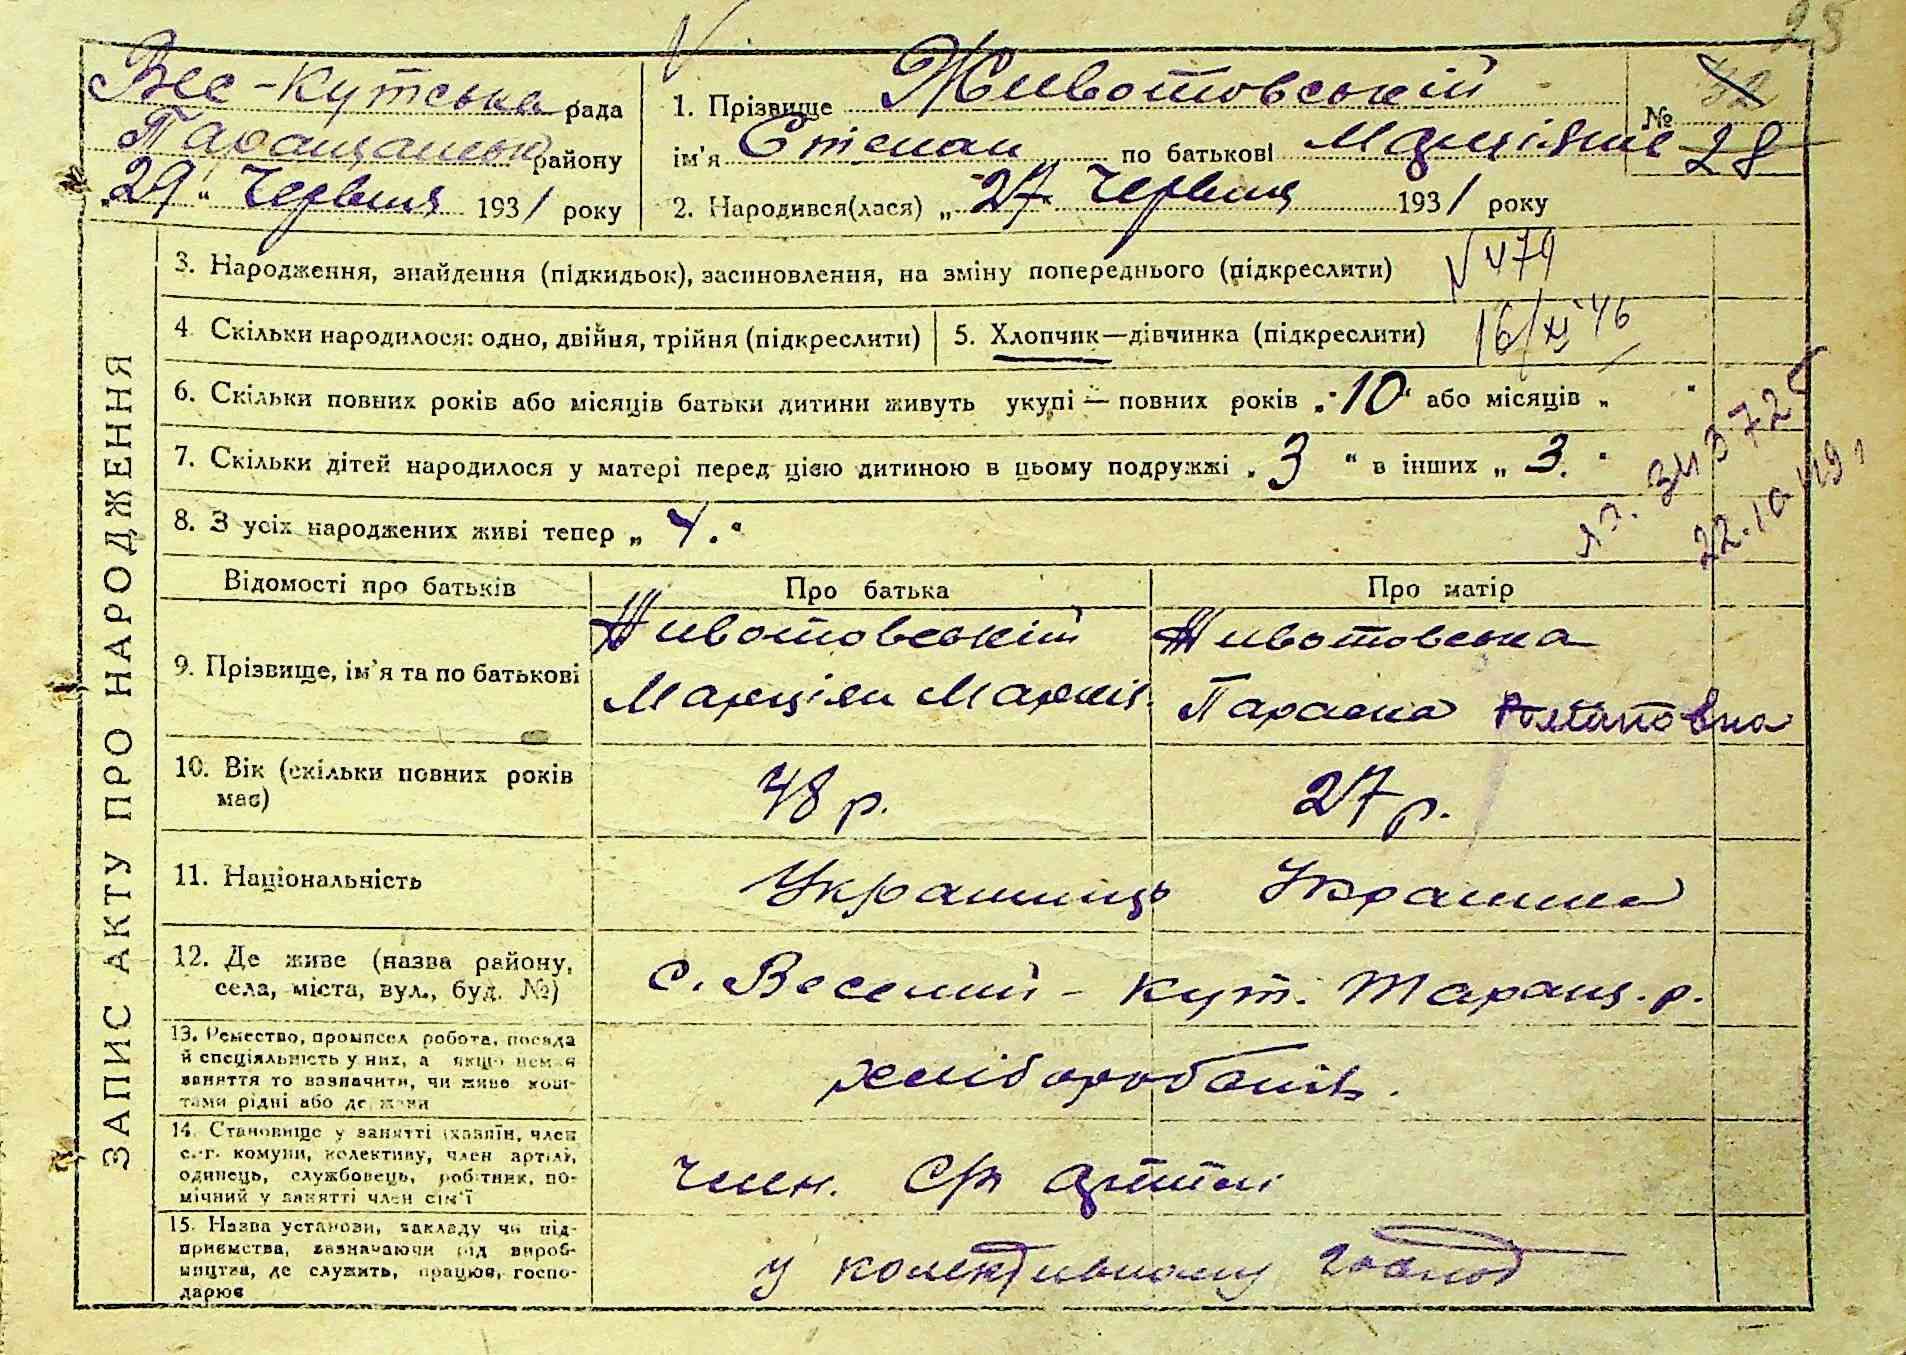 25
Вес-Кутська рада
Таращанськ району
„29“ Червня 1931 року
1. Прізвище Животовській
ім'я Степан по батькові
№ 32
28
2. Народився(лася) „27 Червня 1931 року
ЗАПИС АКТУ ПРО НАРОДЖЕННЯ
3. Народження, знайдення (підкидьок), засиновлення, на зміну попереднього (підкреслити)
4. Скільки народилося: одно, двійня, трійня (підкреслити)
5. Хлопчик—дівчинка (підкреслити)
16/XI 46
6. Скільки повних років або місяців батьки дитини живуть укупі — повних років „10“ або місяців „ “
7. Скільки дітей народилося у матері перед цією дитиною в цьому подружжі „3“ в інших „3.“
8. З усіх народжених живі тепер „4.“
22.10.49
Відомості про батьків Про батька Про матір
9. Прізвище, ім'я та по батькові
Животовській Животовська
Марціян Марків. Параска Романовна
10. Вік (скільки повних років має)
48 р. 27 р.
11. Національність Українець Українка
12. Де живе (назва району, села, міста, вул., буд. №)
с. Веселий-Кут. Таращ. р.
13. Ремество, промисел робота, посада
й спеціяльність у них, а якщо нема
заняття то зазначити, чи живе кош-
тами рідні або держави
хліборобськ.
14. Становище у занятті (хазяїн, член
с.-г. комуни, колективу, член артілі,
одинець, службовець, робітник, по-
мічний у занятті член сім'ї
член. артілі
15. Назва установи, закладу чи під-
приємства, зазначаючи рід вироб-
ництва, де служить, працює, госпо-
дарює
у колективному